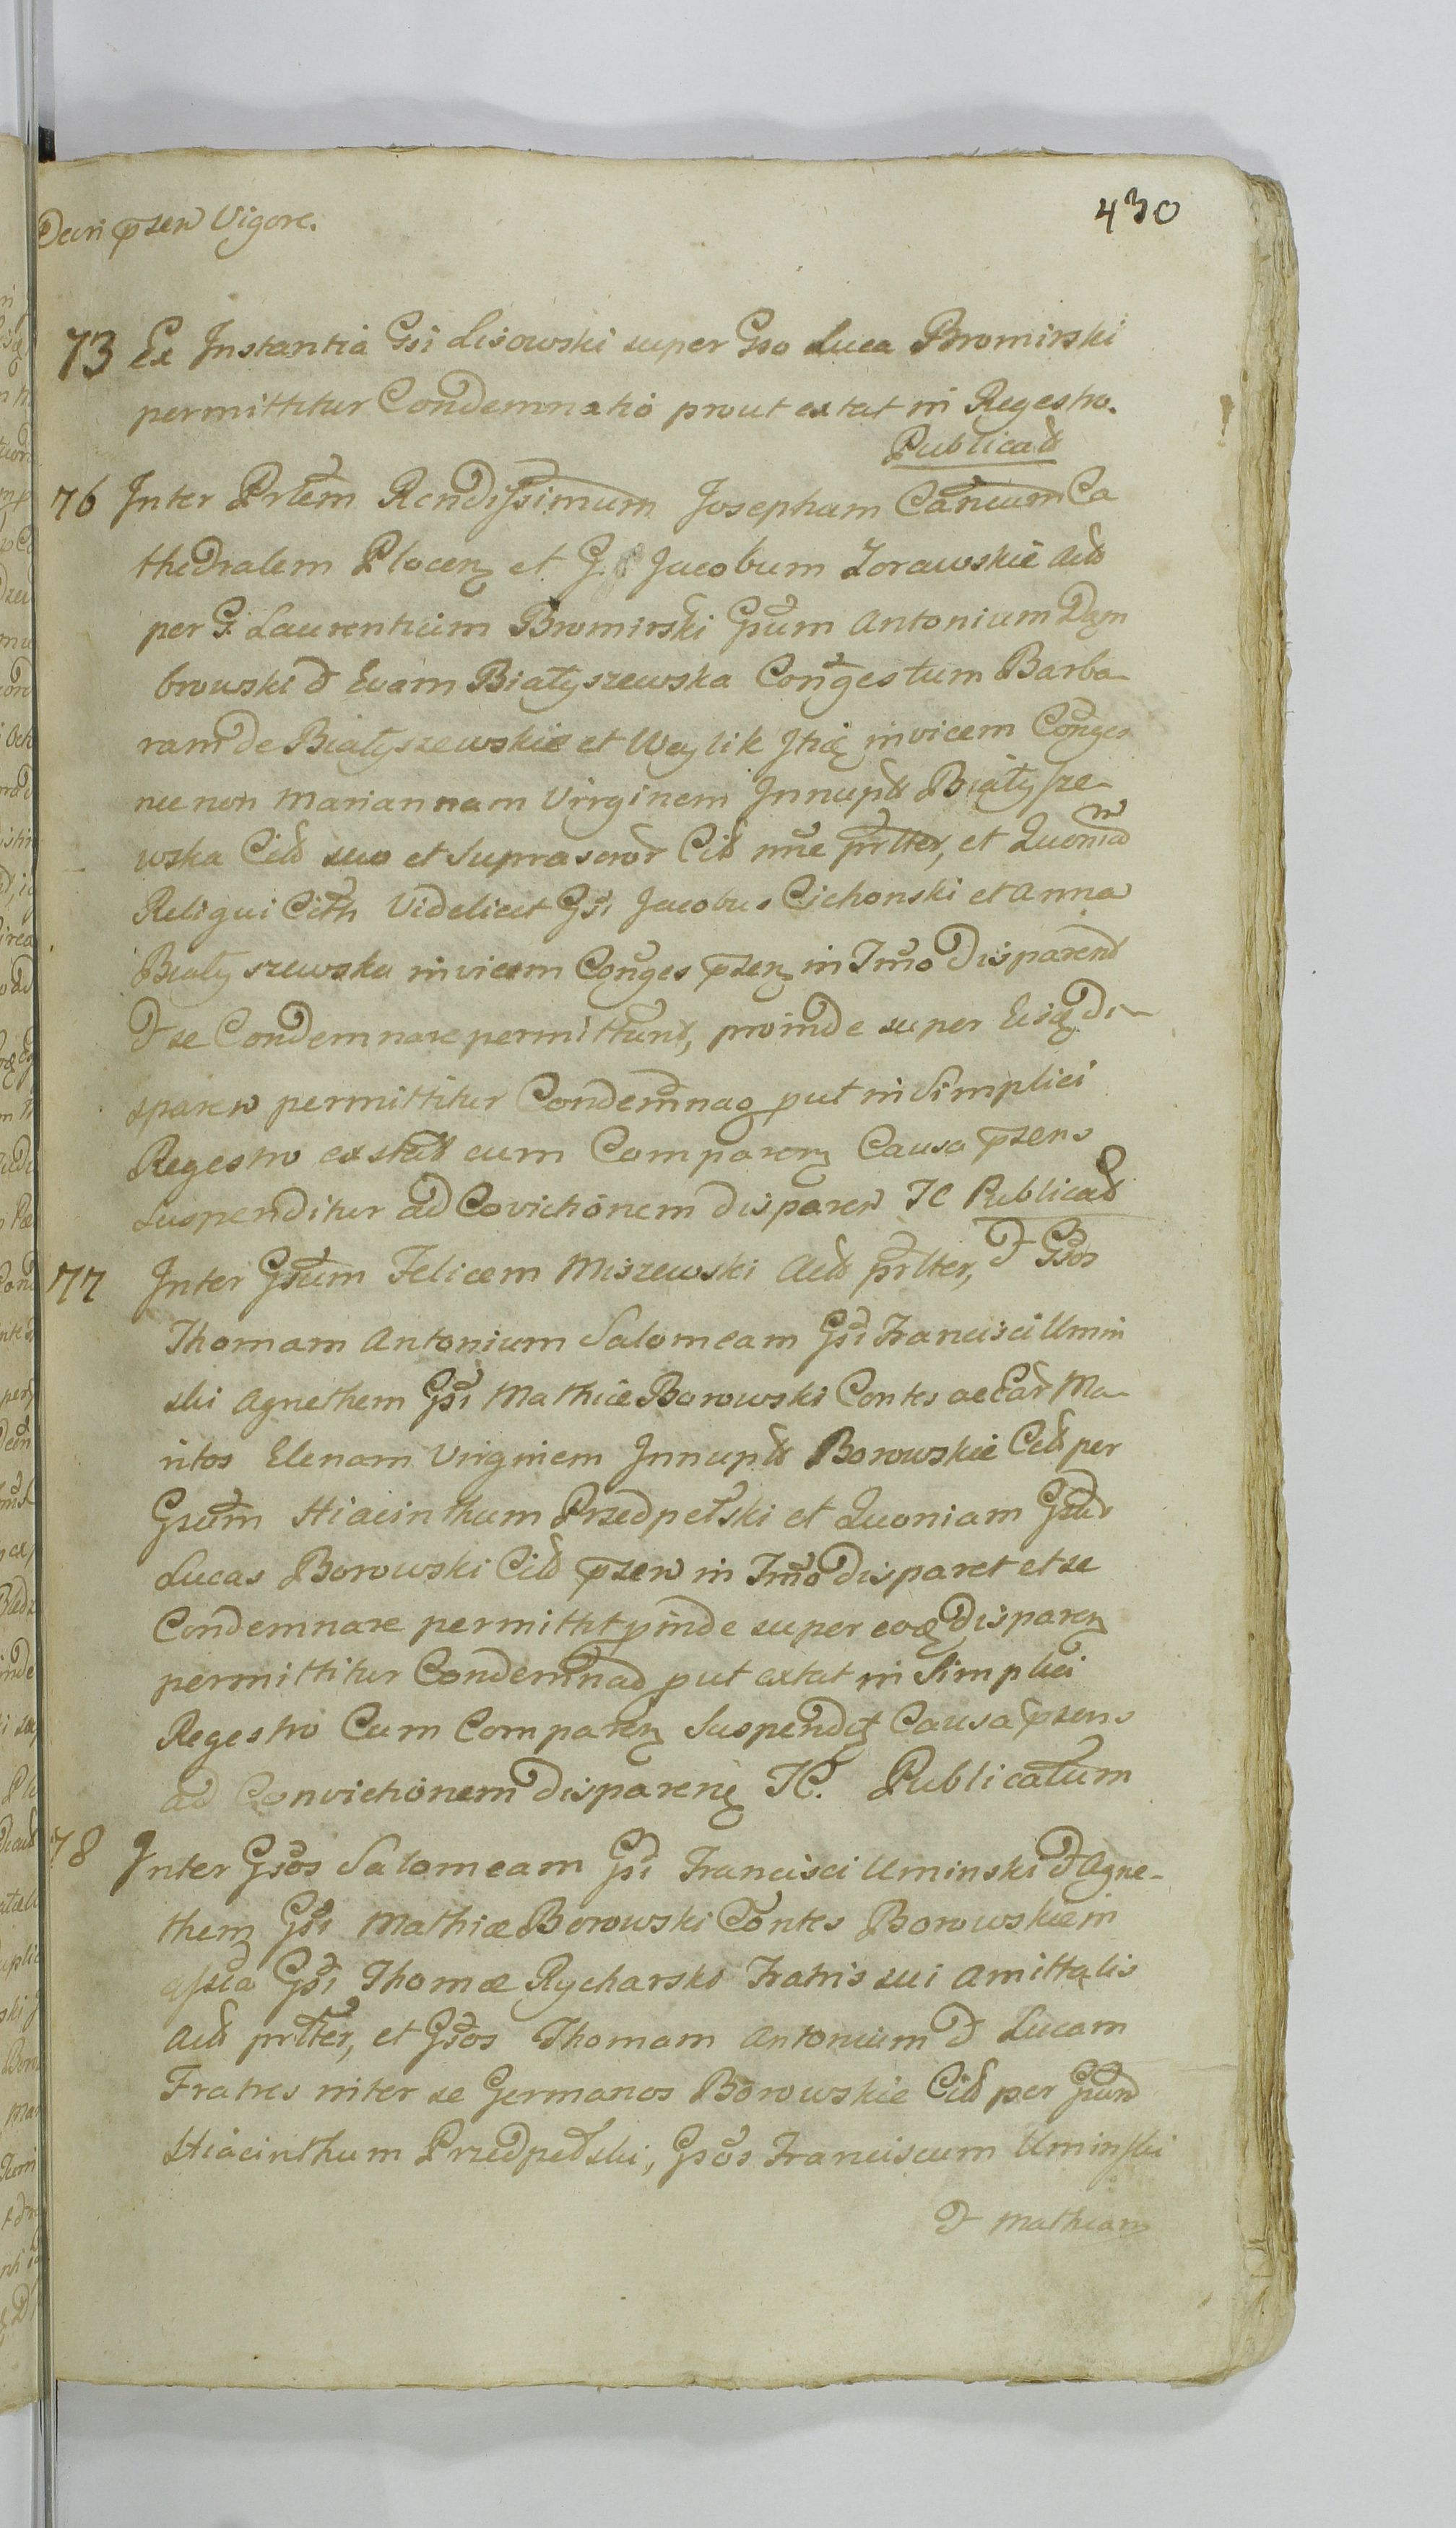 430
Decri pnsen Vigore.
73 Ex Instantiá Gsi Lisowski super Gso Luca Bromirski
permittitur Condemnatio prout extat in Regestro.
Publicat
76 Inter Prlem Rendissimum Josephum Canium Ca
thedralem Plocen et G. Jacobum Zorawskie Act
per G. Laurentium Bromirski Gsum Antonium Dem
browski & Evam Białyszewska Conges tum Barba
ram de Białyszewskie et Węylik invicem Conges
nec non Mariannam Virginem Innupt Białysze
wska Cit suo et Suprascror Cit nne prlter, et Quoniam
Reliqui Citti Videlicet Gsi Jacobus Cichonski et Anna
Białyszewska invicem Conges pnsen in Tmo disparent
& se Condemnare permittunt, proinde super Eisq di
sparen permittitur Condemnao put in Simplici
Regestro exstat cum Comparen Causa pnsens
Suspenditur ad Covictionem disparen TC Publicat
77 Inter Gsum Felicem Miszewski Act prlter, & Gsos
Thomam Antonium Salomeam Gsi Francisci Umin
ski Agnethem Gsi Mathiæ Borowski Contes ac Ear Ma
ritos Elenam Virginem Innupt Borowskie Cit per
Gsum Hiacinthum Przedpełski et Quoniam Gsus
Lucas Borowski Cit pnsen in Tmo disparet et se
Condemnare permittit pinde super eoq disparen
permittitur Condemnao put extat in Simplici
Regestro Cum Comparen Suspendit Causa pnsens
ad Convictionem disparen TC. Publicatum
78 Inter Gsos Salomeam Gsi Francisci Uminski & Agne-
them Gsi Mathiæ Borowski Contes Borowskie in
assia Gsi Thomæ Rycharski Fratris sui Amittalis
Act prlter, et Gsos Thomam Antonium & Lucam
Fratres inter se Germanos Borowskie Cit per Gsum
Hiacinthum Przedpełski, Gsos Franciscum Uminski
& Mathiam